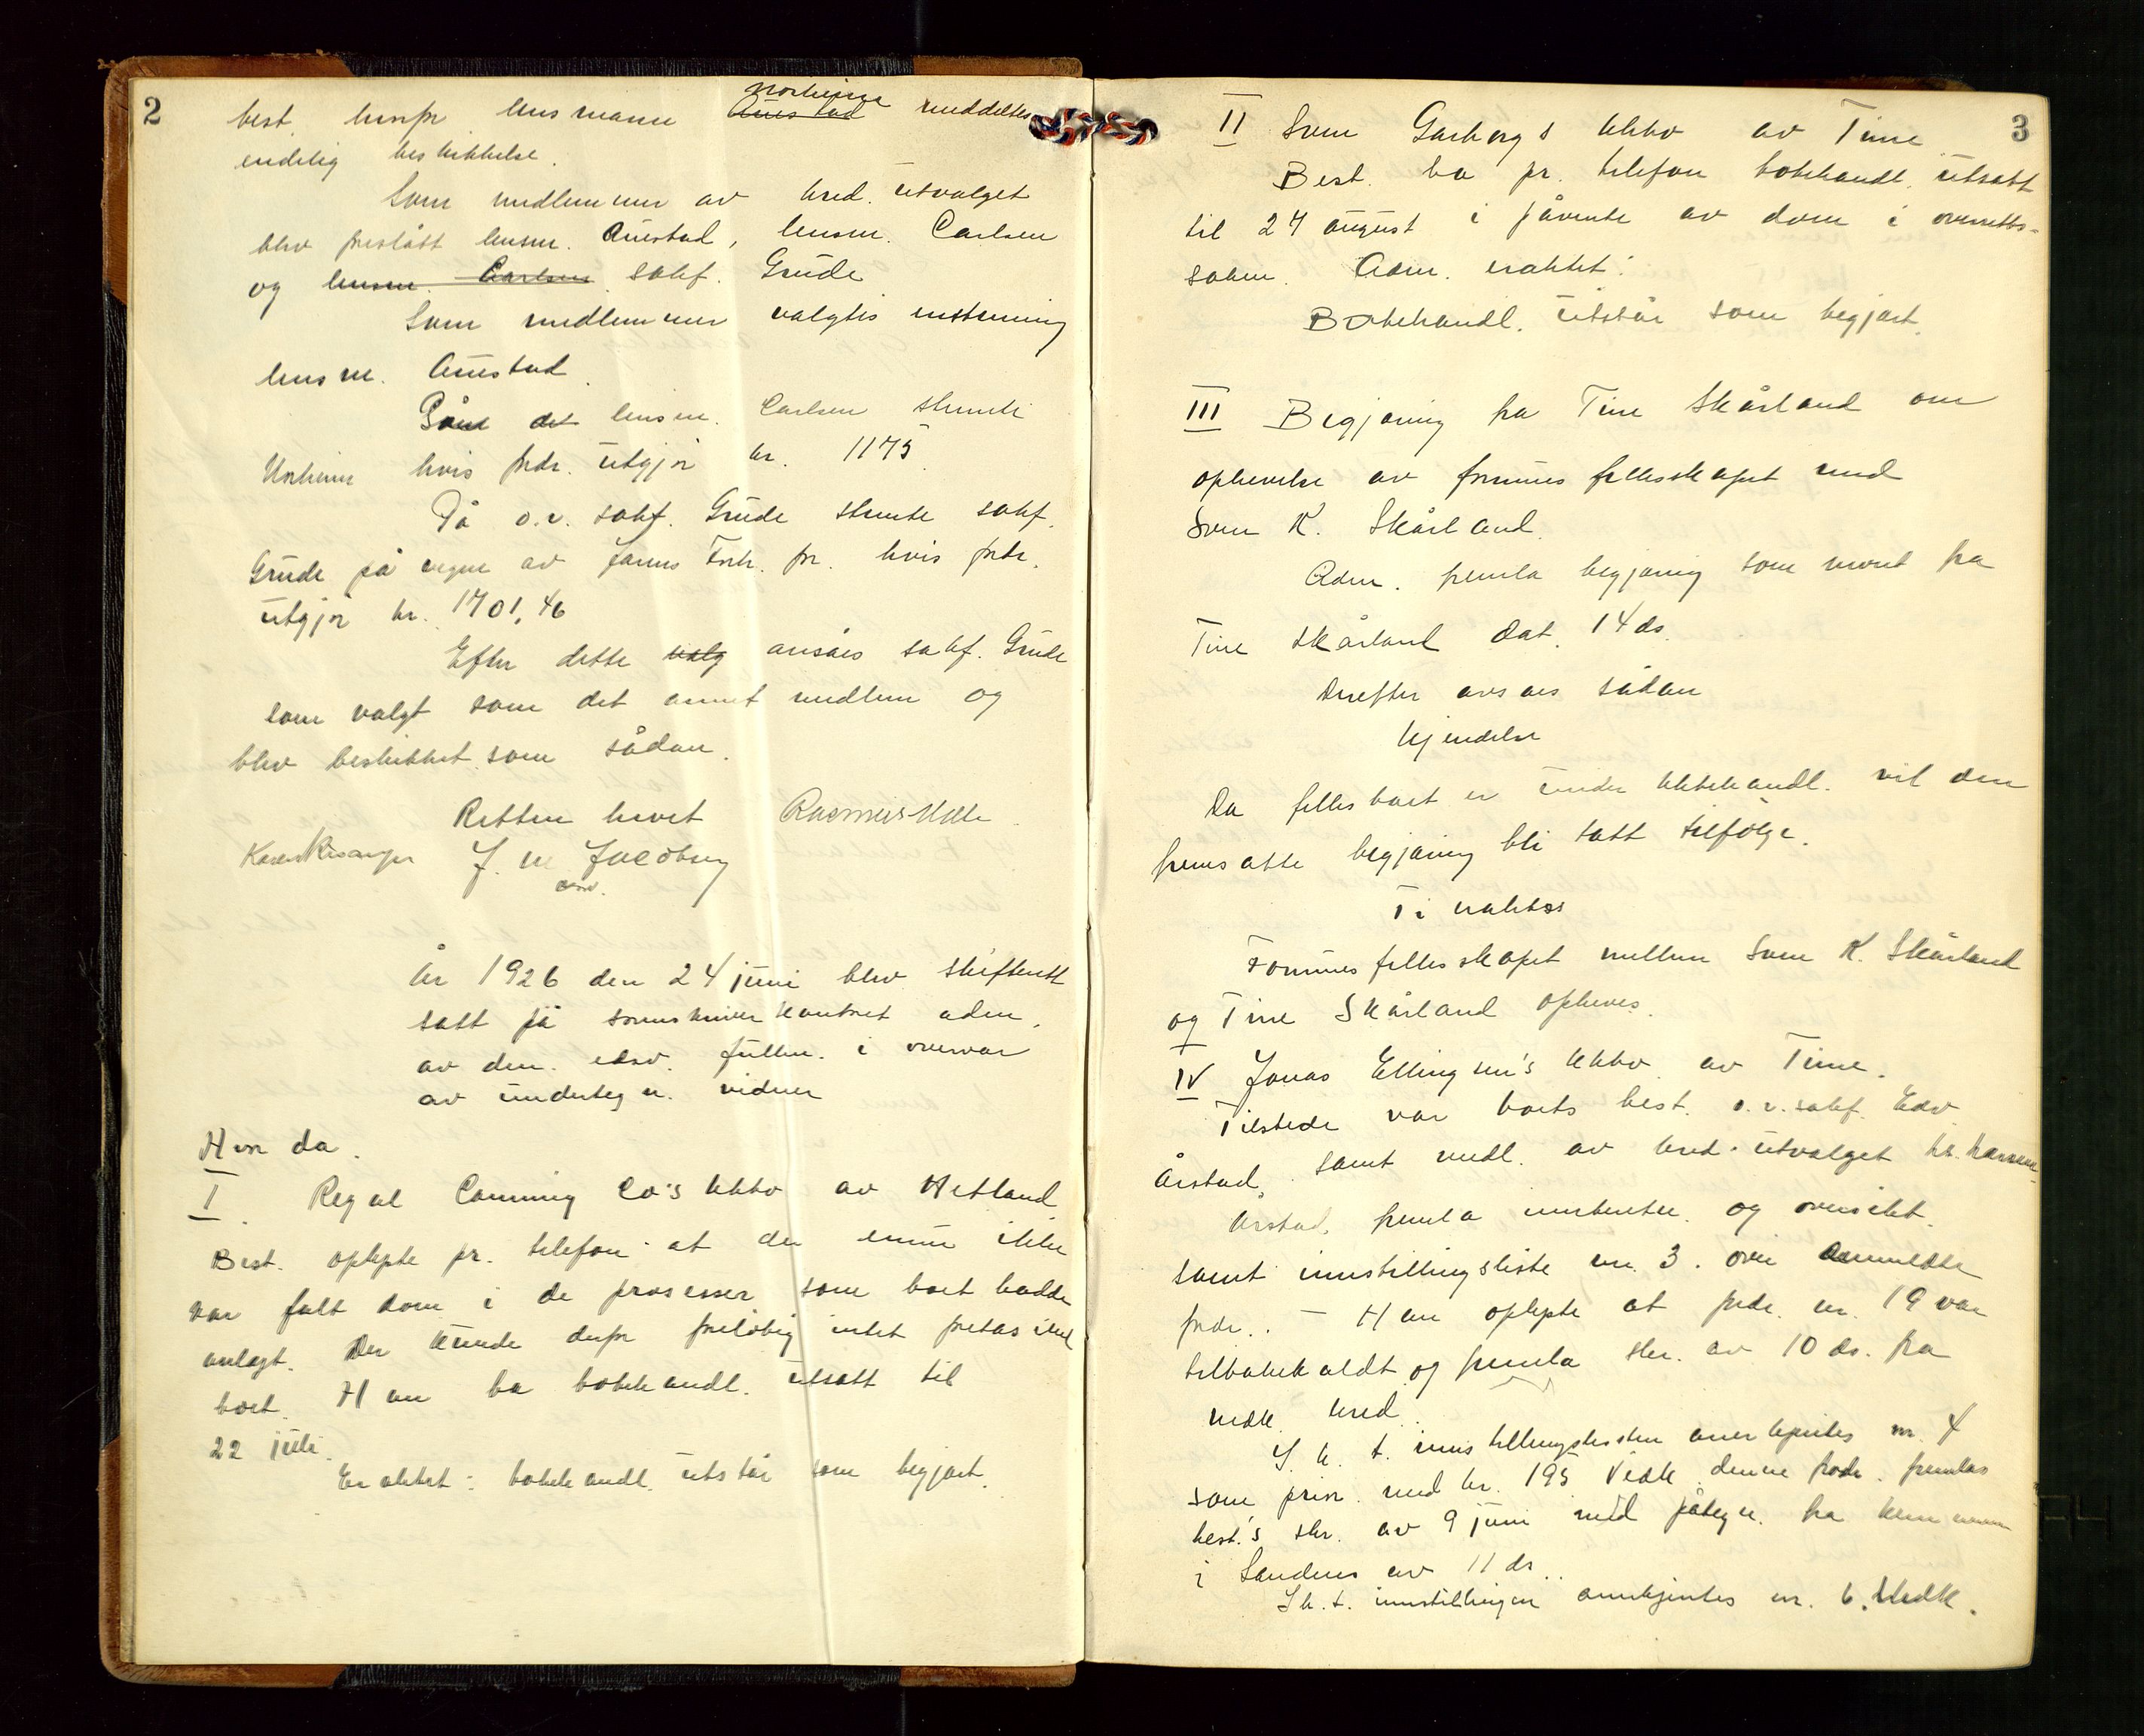 2
best. lensmann Norheim meddeltes
Auestad
endelig beskikkelse.
Som medlemmer av kred. utvalget
blev foreslått lensm. Auestad, lensm. Carlsen
og lensm. Carlsen sakf. Grude
Som medlemmer valgtes enstemmig
lensm. Auestad.
På det lensm. Carlsen stemte
hvis fordr. utgjør kr. 1175
På o.r. sakf. Grude stemte sakf.
Grude på vegne av for. hvis fordr.
utgjør kr. 1701,46
Efter dette valg ansåes sakf. Grude
som valgt som det annet medlem og
blev beskikket som sådan.
Retten hevet Rasmus
J. M. Jacobsen
År 1926 den 24 juni blev skifterett
satt på sorenskriverkontoret adm.
av den edsv. fullm. i overvær
av undertegn. vidner
Hvor da.
I. Regal Canning Co's kkbo av Hetland
Best. oplyste pr. telefon at der ennu ikke
var falt dom i de prosesser som boet hadde
anlagt. Der kunde derfor foreløbig intet foretas i
boet. Han ba bobehandl. utsatt til
22 juli.
Eraktet: bobehandl. utstår som begjært.
3
II Sven Garborgs kkbo av Time
Best. ba pr. telefon bobehandl. utsatt
til 27 august i påvente av dom i overretts-
saken. Adm. eraktet:
Bobehandl. utstår som begjært.
III Begjæring fra Tine Skårland om
ophevelse av formuesfellesskapet med
Sven K. Skårland.
Adm. fremla begjæring som nevnt fra
Tine Skårland dat. 14 ds.
Derefter avsaes sådan
kjendelse
Da fellesboet er under kkbehandl. vil den
fremsatte begjæring bli tatt tilfølge.
Ti eraktes
Formuesfellesskapet mellem Sven K. Skårland
og Tine Skårland opheves.
IV Jonas Ellingsen's kkbo av Time.
Tilstede var boets best. o.r.sakf. Edv.
Årstad, samt medl. av kred.utvalget hr.
Årstad, fremla og oversikt
samt innstillingsliste nr. 3. over anmeldte
fordr. . — Han oplyste at fordr. nr. 19 var
tilbakekaldt og fremla skr. av 10 ds. fra
vedk. kred.
I h. t. innstillingslisten anerkjentes nr. 4
som prior. med kr. 195 Vedk. denne fordr. fremlas
best.'s skr. av 9 juni med påtegn. fra
i Sandnes av 11 ds..
I h. t. innstillingen annerkjentes nr. 6. Vedk.